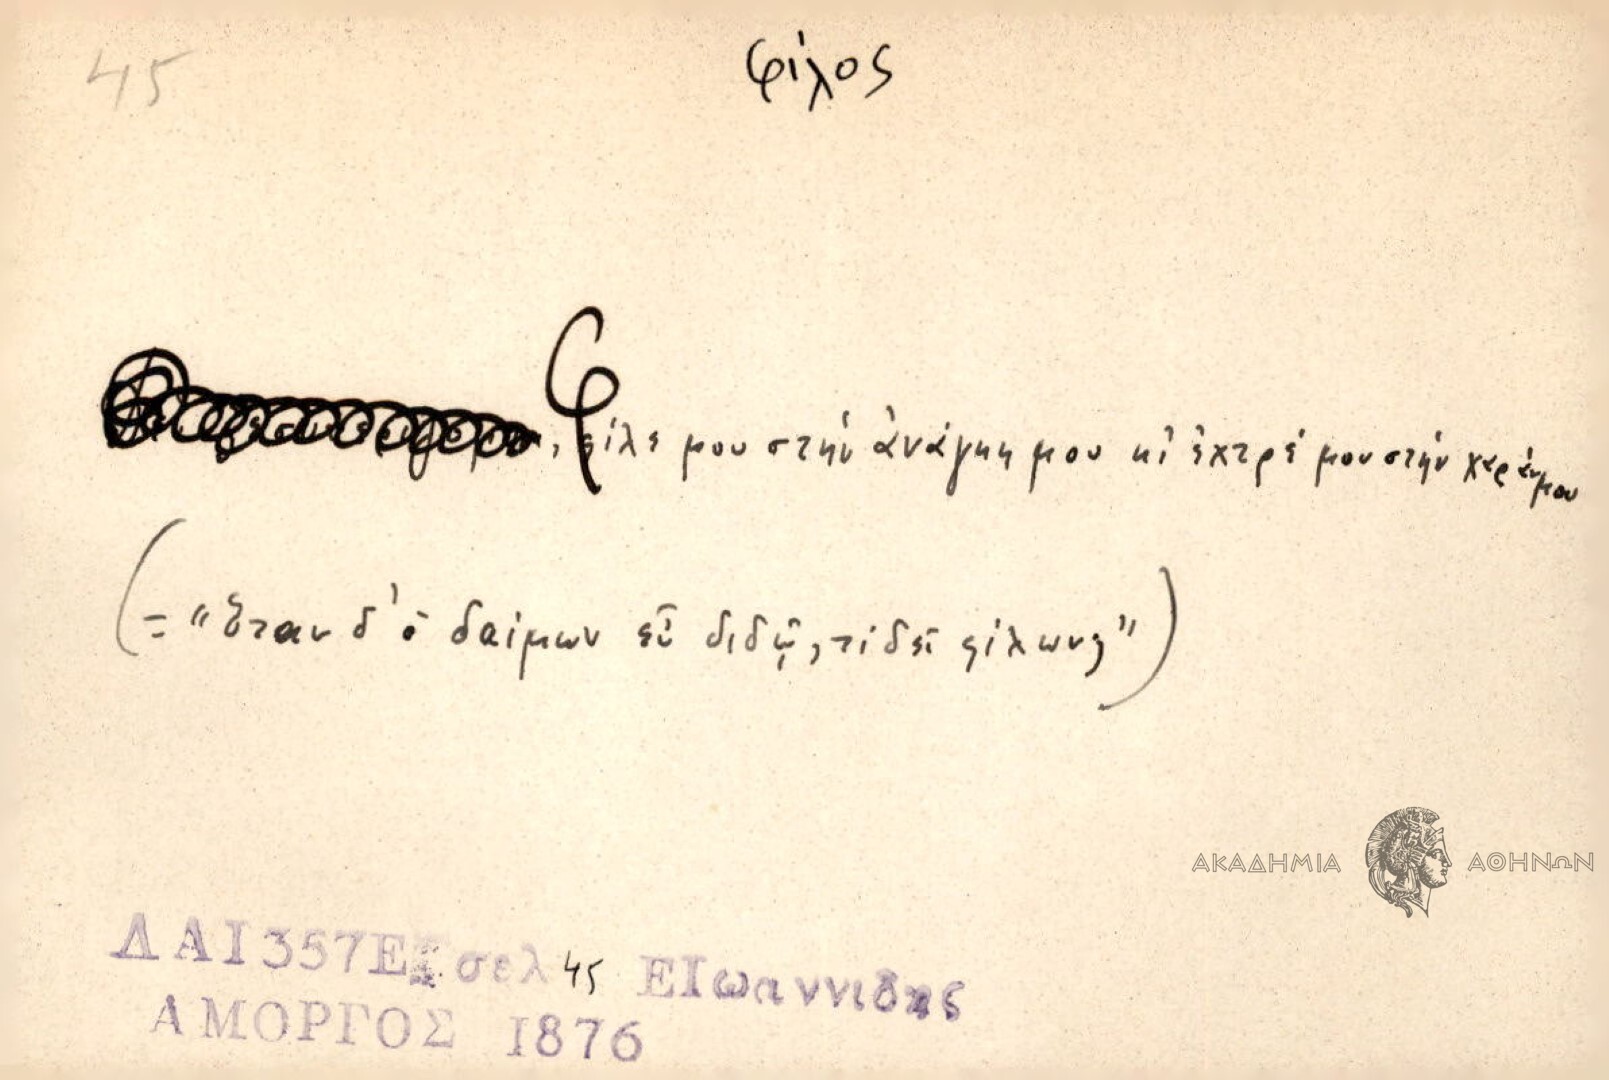 45
φίλος
Φίλε μου στὴν ἀνάγκη μου κι ἐχτρέ μου στὴν χαράν μου
(= "ὅταν δ' ὁ δαίμων εὖ διδῷ, τί δεῖ φίλων;")
ΑΚΑΔΗΜΙΑ ΑΘΗΝΩΝ
ΔΑΙ357Ε σελ 45 ΕΙωαννιδης
ΑΜΟΡΓΟΣ 1876